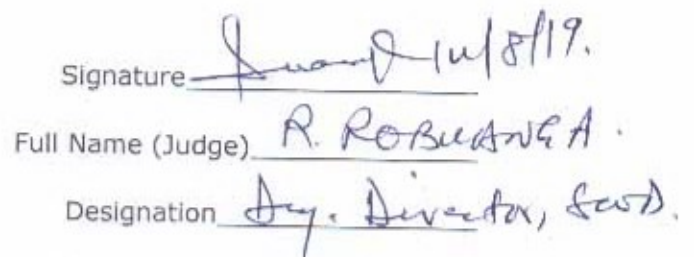 Signature 14/8/19.
Full Name (Judge) R. ROBUANGA.
Designation Dy. Director, S&WD.